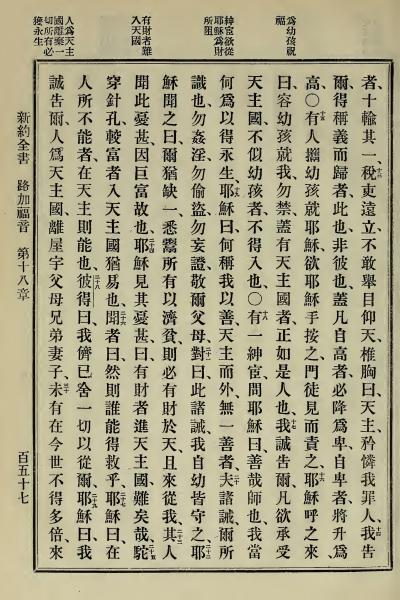 爲幼孩祝
福
紳宦欲從
耶穌爲財
所阻
有財者難
入天國
人爲天主
國離棄一
切所有必
獲永生
者十輸其一稅吏遠立不敢舉目仰天椎胸曰天主矜憐我罪人我告
爾得稱義而歸者此也非彼也蓋凡自高者必降爲卑自卑者將升爲
高〇有人攜幼孩就耶穌欲耶穌手按之門徒見而責之耶穌呼之來
曰容幼孩就我勿禁蓋有天主國者正如是人也我誠告爾凡欲承受
天主國不似幼孩者不得入也〇有一紳宦問耶穌曰善哉師也我當
何爲以得永生耶穌曰何稱我以善天主而外無一善者夫諸誡爾所
識也勿姦淫勿偷盜勿妄證敬爾父母對曰此諸誡我自幼皆守之耶
穌聞之曰爾猶缺一悉鬻所有以濟貧則必有財於天且來從我其人
聞此憂甚因巨富故也耶穌見其憂甚曰有財者進天主國難矣哉駝
穿針孔較富者入天主國猶易也聞者曰然則誰能得救乎耶穌曰在
人所不能者在天主則能也彼得曰我儕已舍一切以從爾耶穌曰我
誠告爾人爲天主國離屋宇父母兄弟妻子未有在今世不得多倍來
新約全書 路加福音 第十八章 百五十七